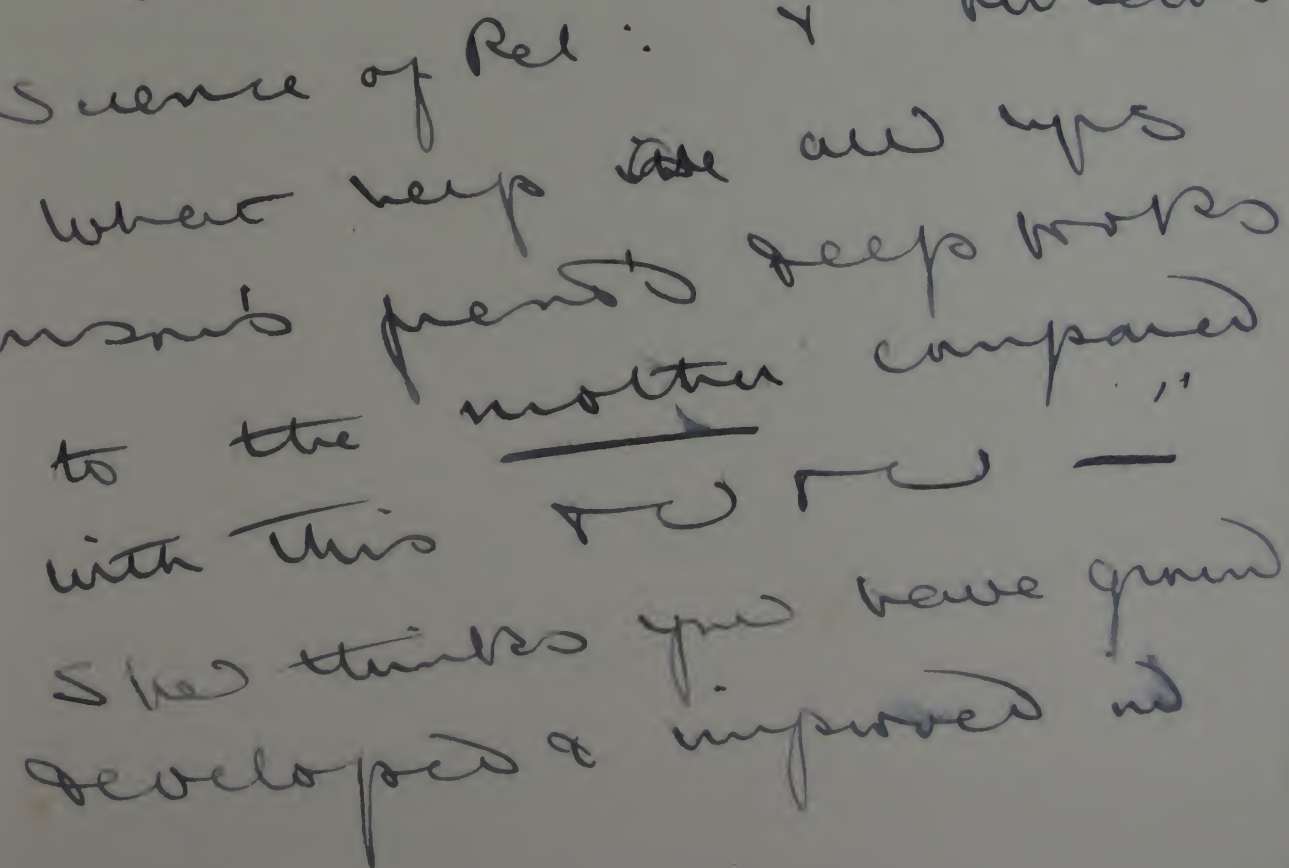 Science of Rel: &
What help are all yrs
friend's deep works
to the mother compared
with this — — — "
She thinks you have grown
developed & improved